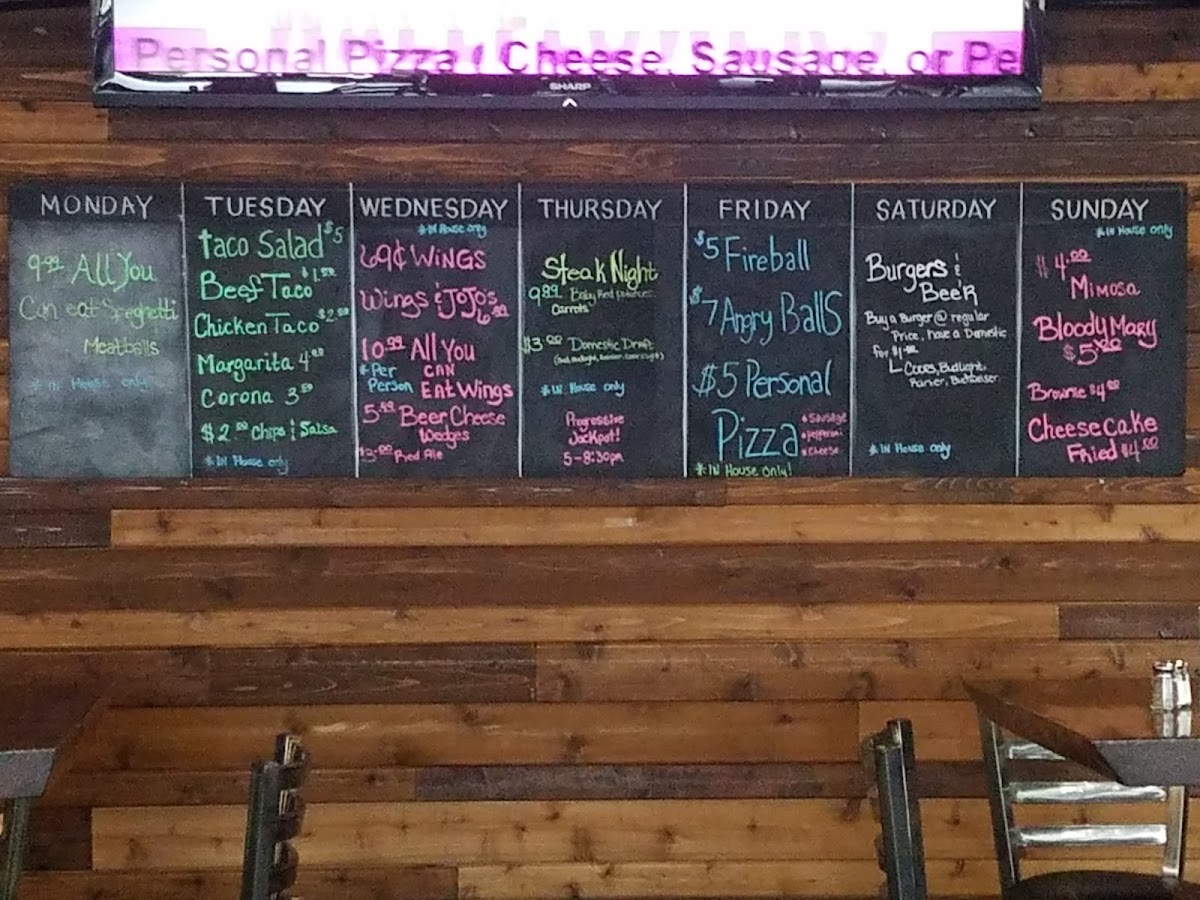 Personal Pizza ( Cheese, Sausage, or Pe
SHARP
MONDAY
9.99 All You
Can eat Spaghetti
Meatballs
*IN House only
TUESDAY
Taco Salad $5
Beef Taco $1.50
Chicken Taco $2.50
Margarita 4.00
Corona 3.50
$2.00 Chips & Salsa
*IN House only
WEDNESDAY
*IN House only
69¢ WINGS
Wings & JoJo's
10.99 All You
*Per CAN
Person Eat Wings
5.99 Beer Cheese
Wedges
$3.00 Red Ale
THURSDAY
Steak Night
9.89 Baby Red potatoes
Carrots
$3.00 Domestic Draft
*IN House only
Progressive
Jackpot!
5-8:30pm
FRIDAY
$5 Fireball
$7 Angry Balls
$5 Personal
Pizza
•Sausage
•pepperoni
•Cheese
*IN House only!
SATURDAY
Burgers &
Beer
Buy a Burger @ regular
Price, have a Domestic
for
Coors, Budlight,
Rainier, Budweiser
*IN House only
SUNDAY
*IN House only
$4.00
Mimosa
Bloody Mary
$5.00
Brownie $4.00
Cheesecake
Fried $4.00